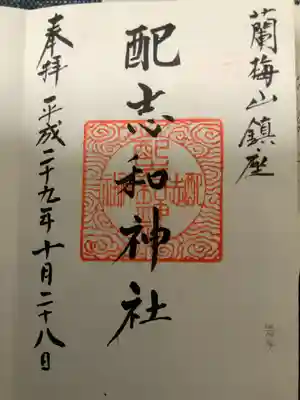 蘭梅山鎮座
配志和神社
奉拝 平成二十九年十月二十八日